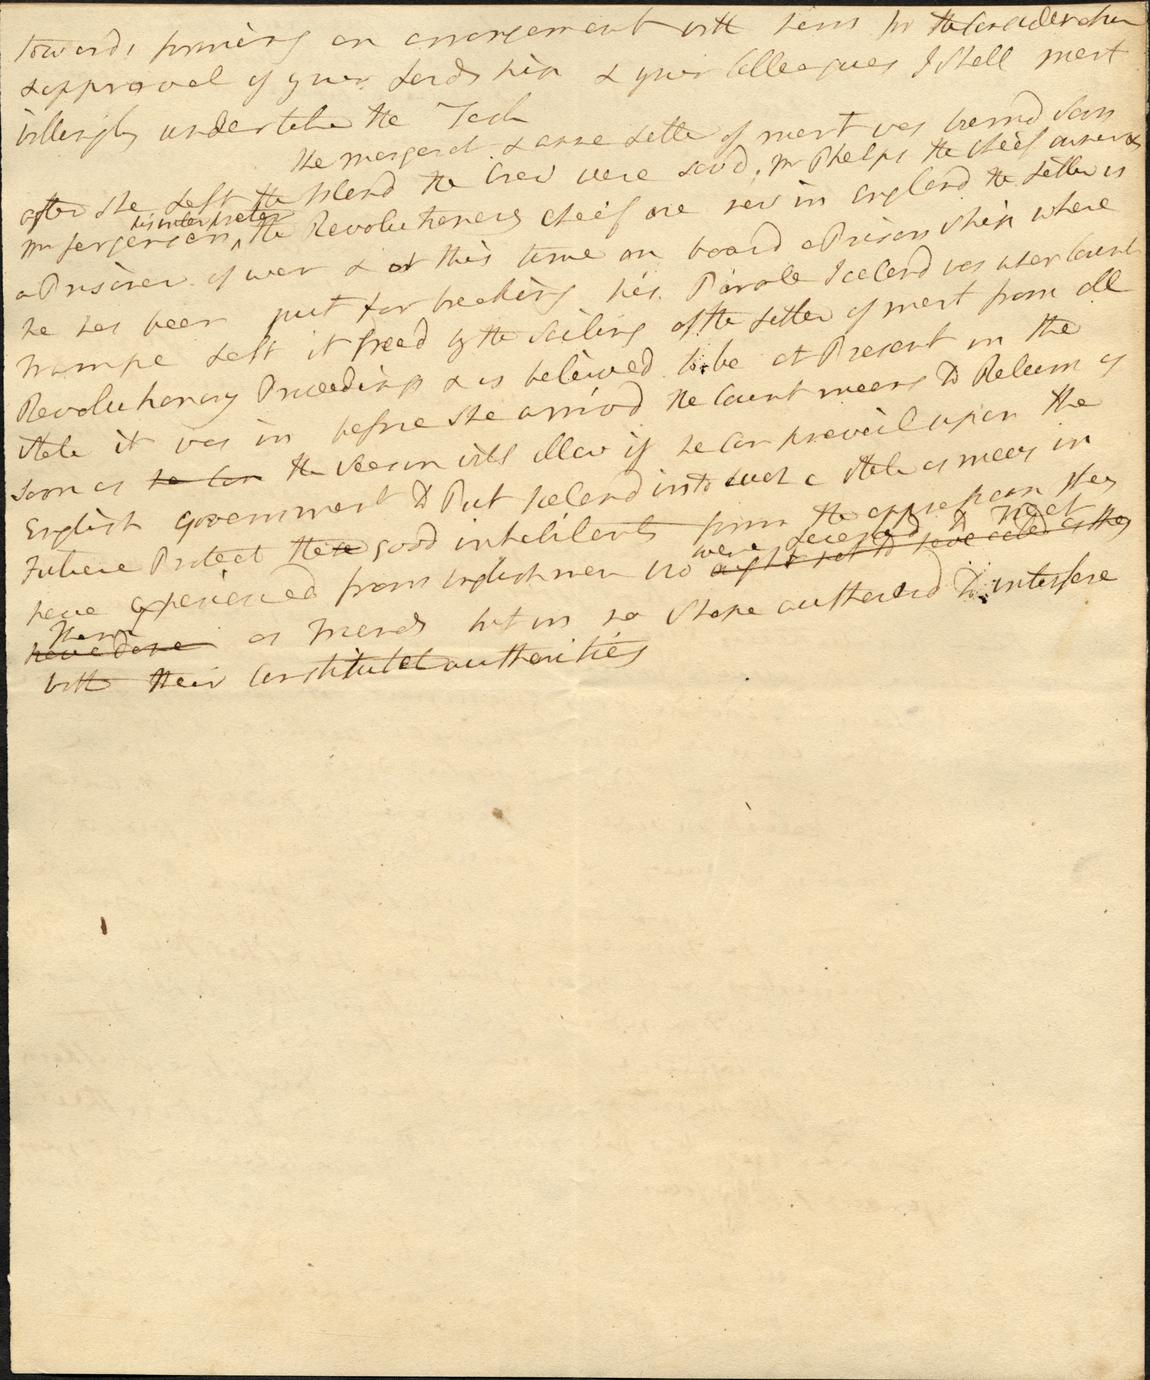 towards forming an arrangement with him for the Consideration
& approval of your Lordship & your Colleagues I Shall most
willingly undertake the Task
The margaret & anne Letter of mart was burnd soon
after She Left the Island the Crew were savd. Mr Phelps the Chief owner &
his interpreter
Mr Jorgensen, the Revolutionery cheif are now in England the Latter is
a Prisoner of war & at this time on board a Prison Ship where
he has been put for breaking his Parole Iceland was when Count
Trampe Left it freed by the Sailing of the Letter of mart from all
Revolutionary Proceedings & is beleived to be at Present in the
State it was in before She arrivd the Count means to Return as
soon as he can the season will allow if he Can prevail upon the
English government to Put Iceland into such a State as may in
Future Protect these good inhabitants from the oppression they
were deceived to treat
have experienced from Englishmen who ought not to have acted as they
them
have done as Friends but in no Shape authorisd to interfere
with their Constituted authorities